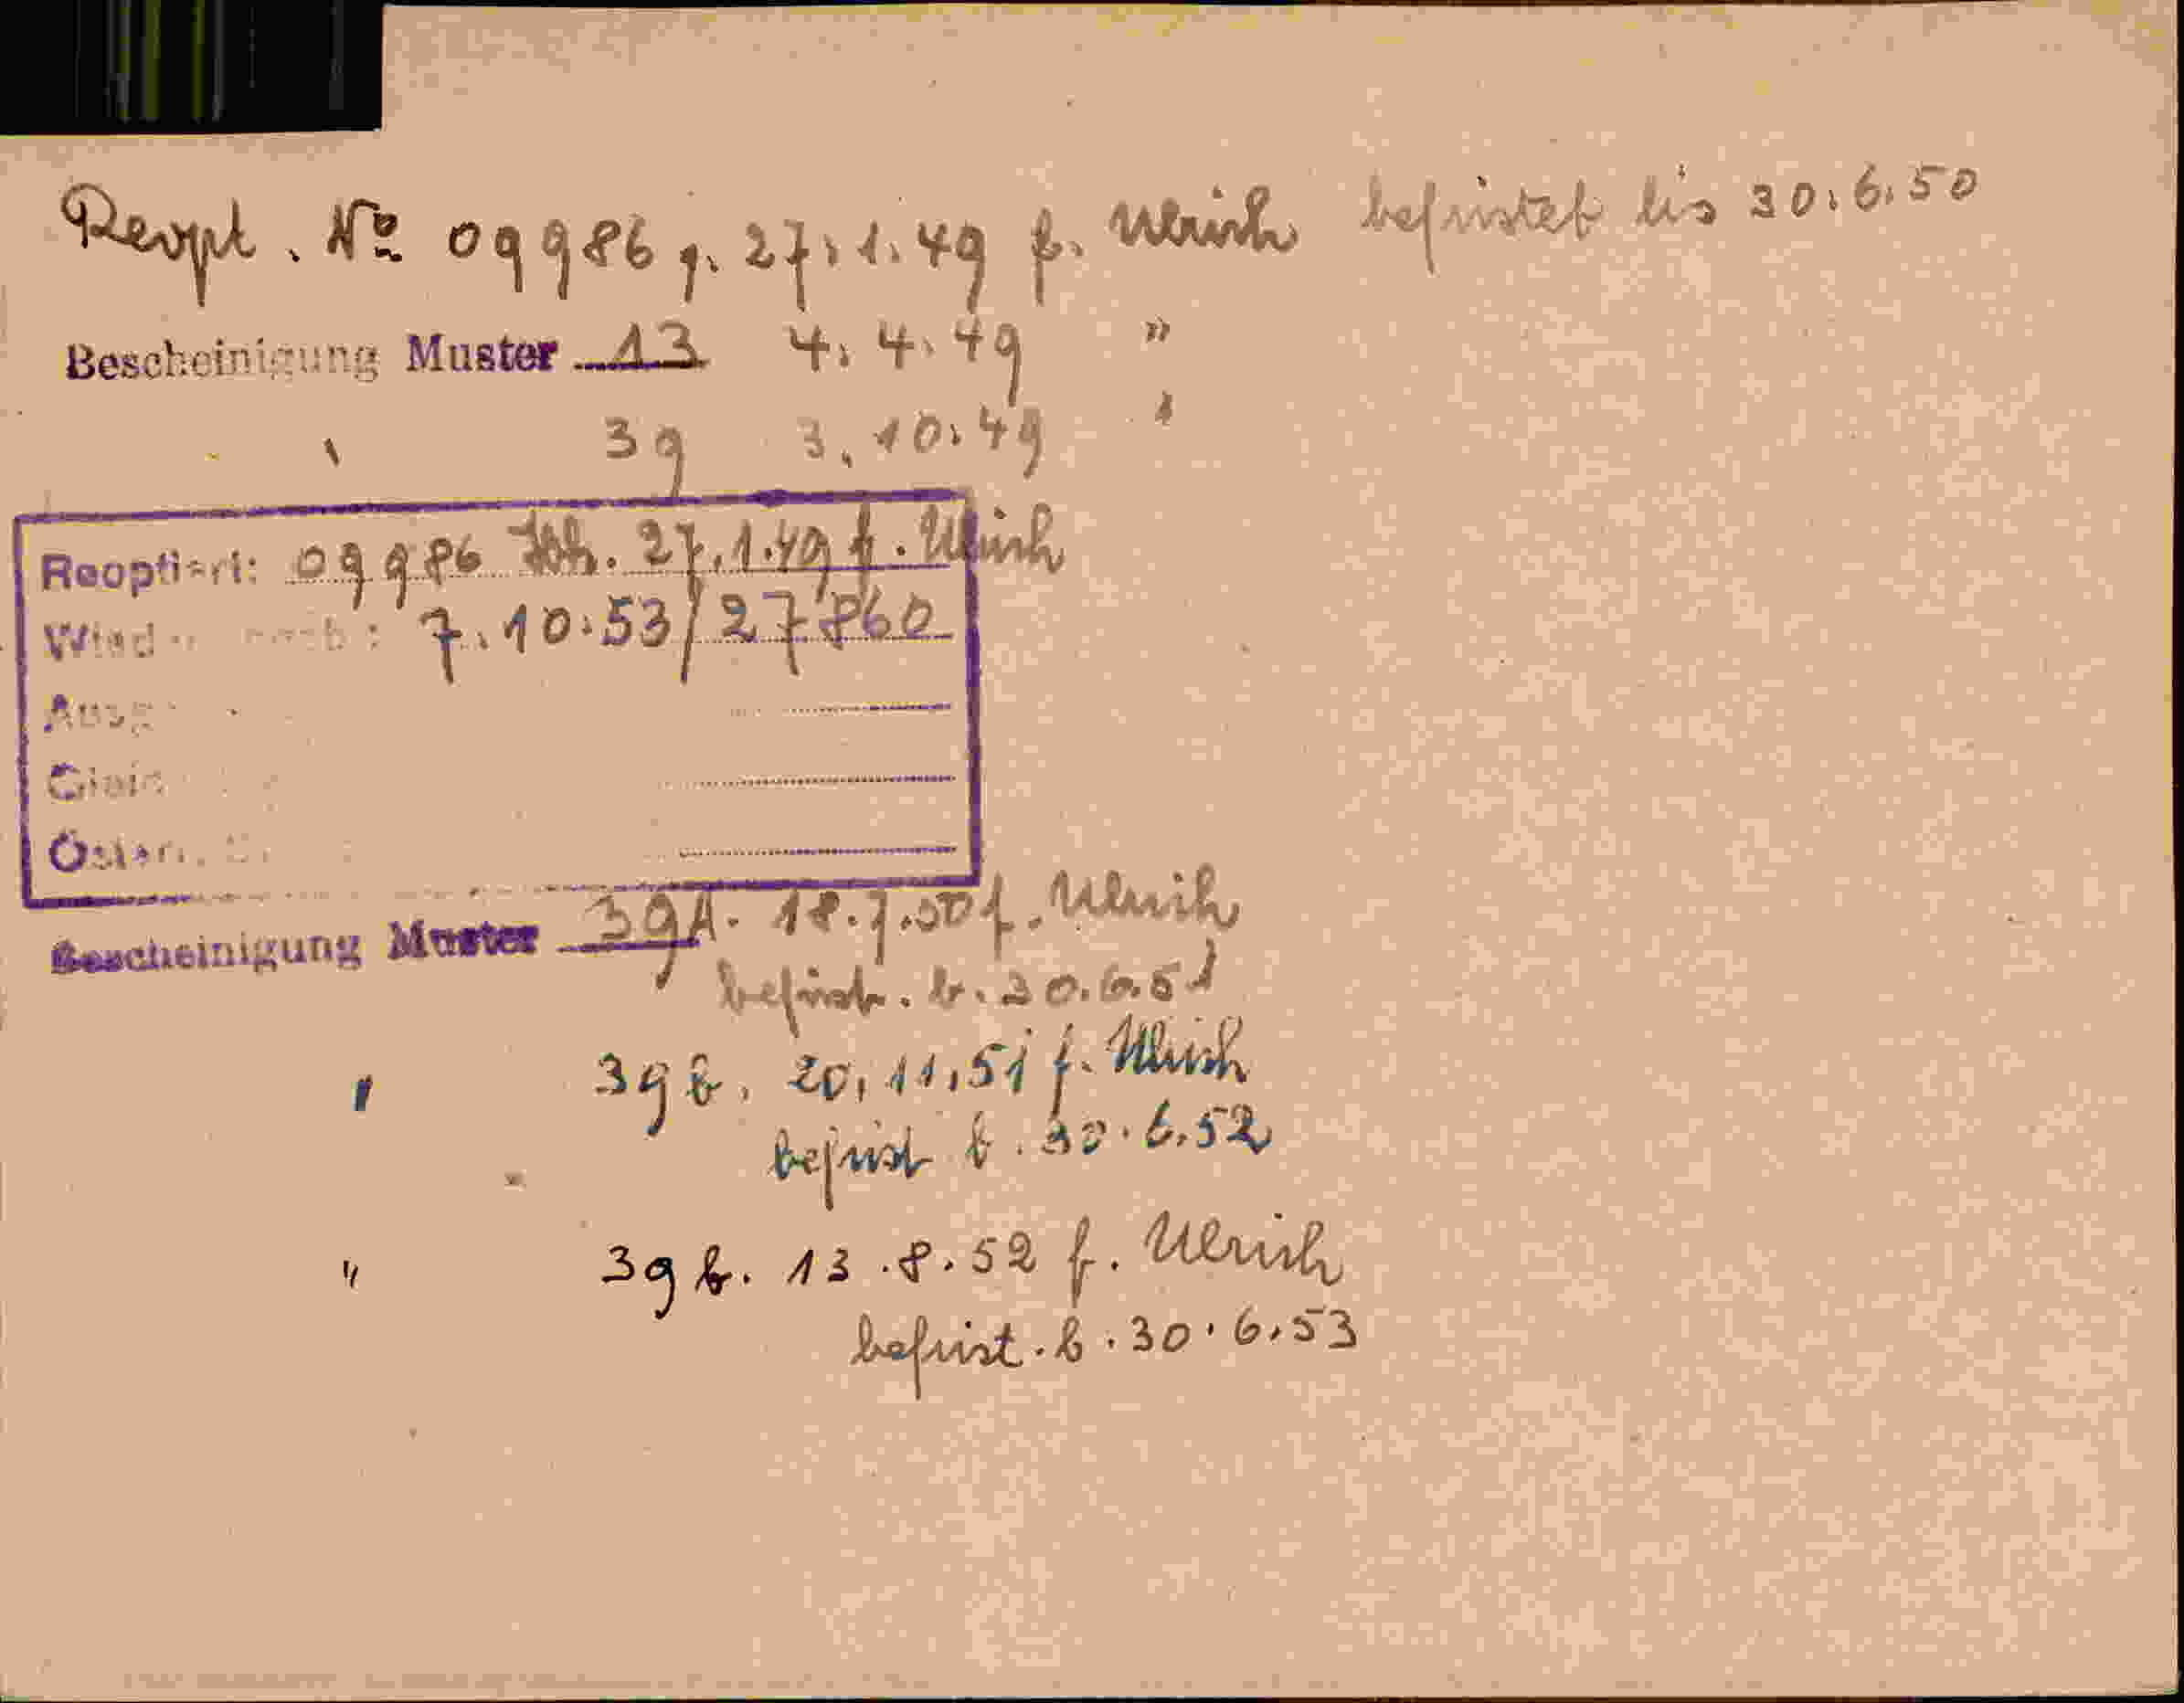 Reopt. № 09986 v. 27.1.49 f. Ulrich befristet bis 30.6.50
Bescheinigung Muster 13 4.4.49 "
" 39 3.10.49 "
Reoptiert: 09986 27.1.49 f. Ulrich
7.10.53/27860
Bescheinigung Muster 39A. 18.7.50 f. Ulrich
befrist. b. 30.6.51
" 39b. 20.11.51 f. Ulrich
befrist b. 30.6.52
" 39b. 13.8.52 f. Ulrich
befrist. b. 30.6.53